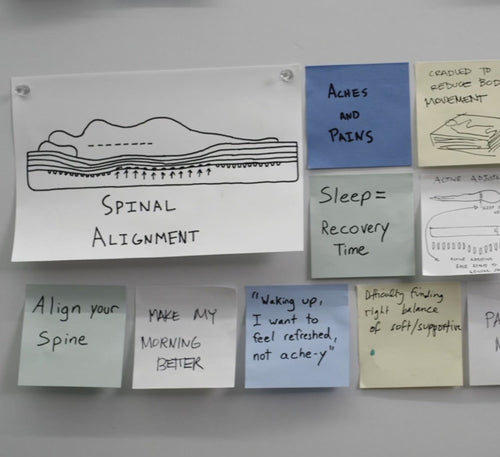 SPINAL
ALIGNMENT
ACHES
AND
PAINS
CRADLED TO
REDUCE BOD
MOVEMENT
Sleep =
Recovery
Time
Align your
Spine
MAKE MY
MORNING
BETTER
"Waking up,
I want to
feel refreshed,
not ache-y"
Difficulty finding
right balance
of soft/supportive